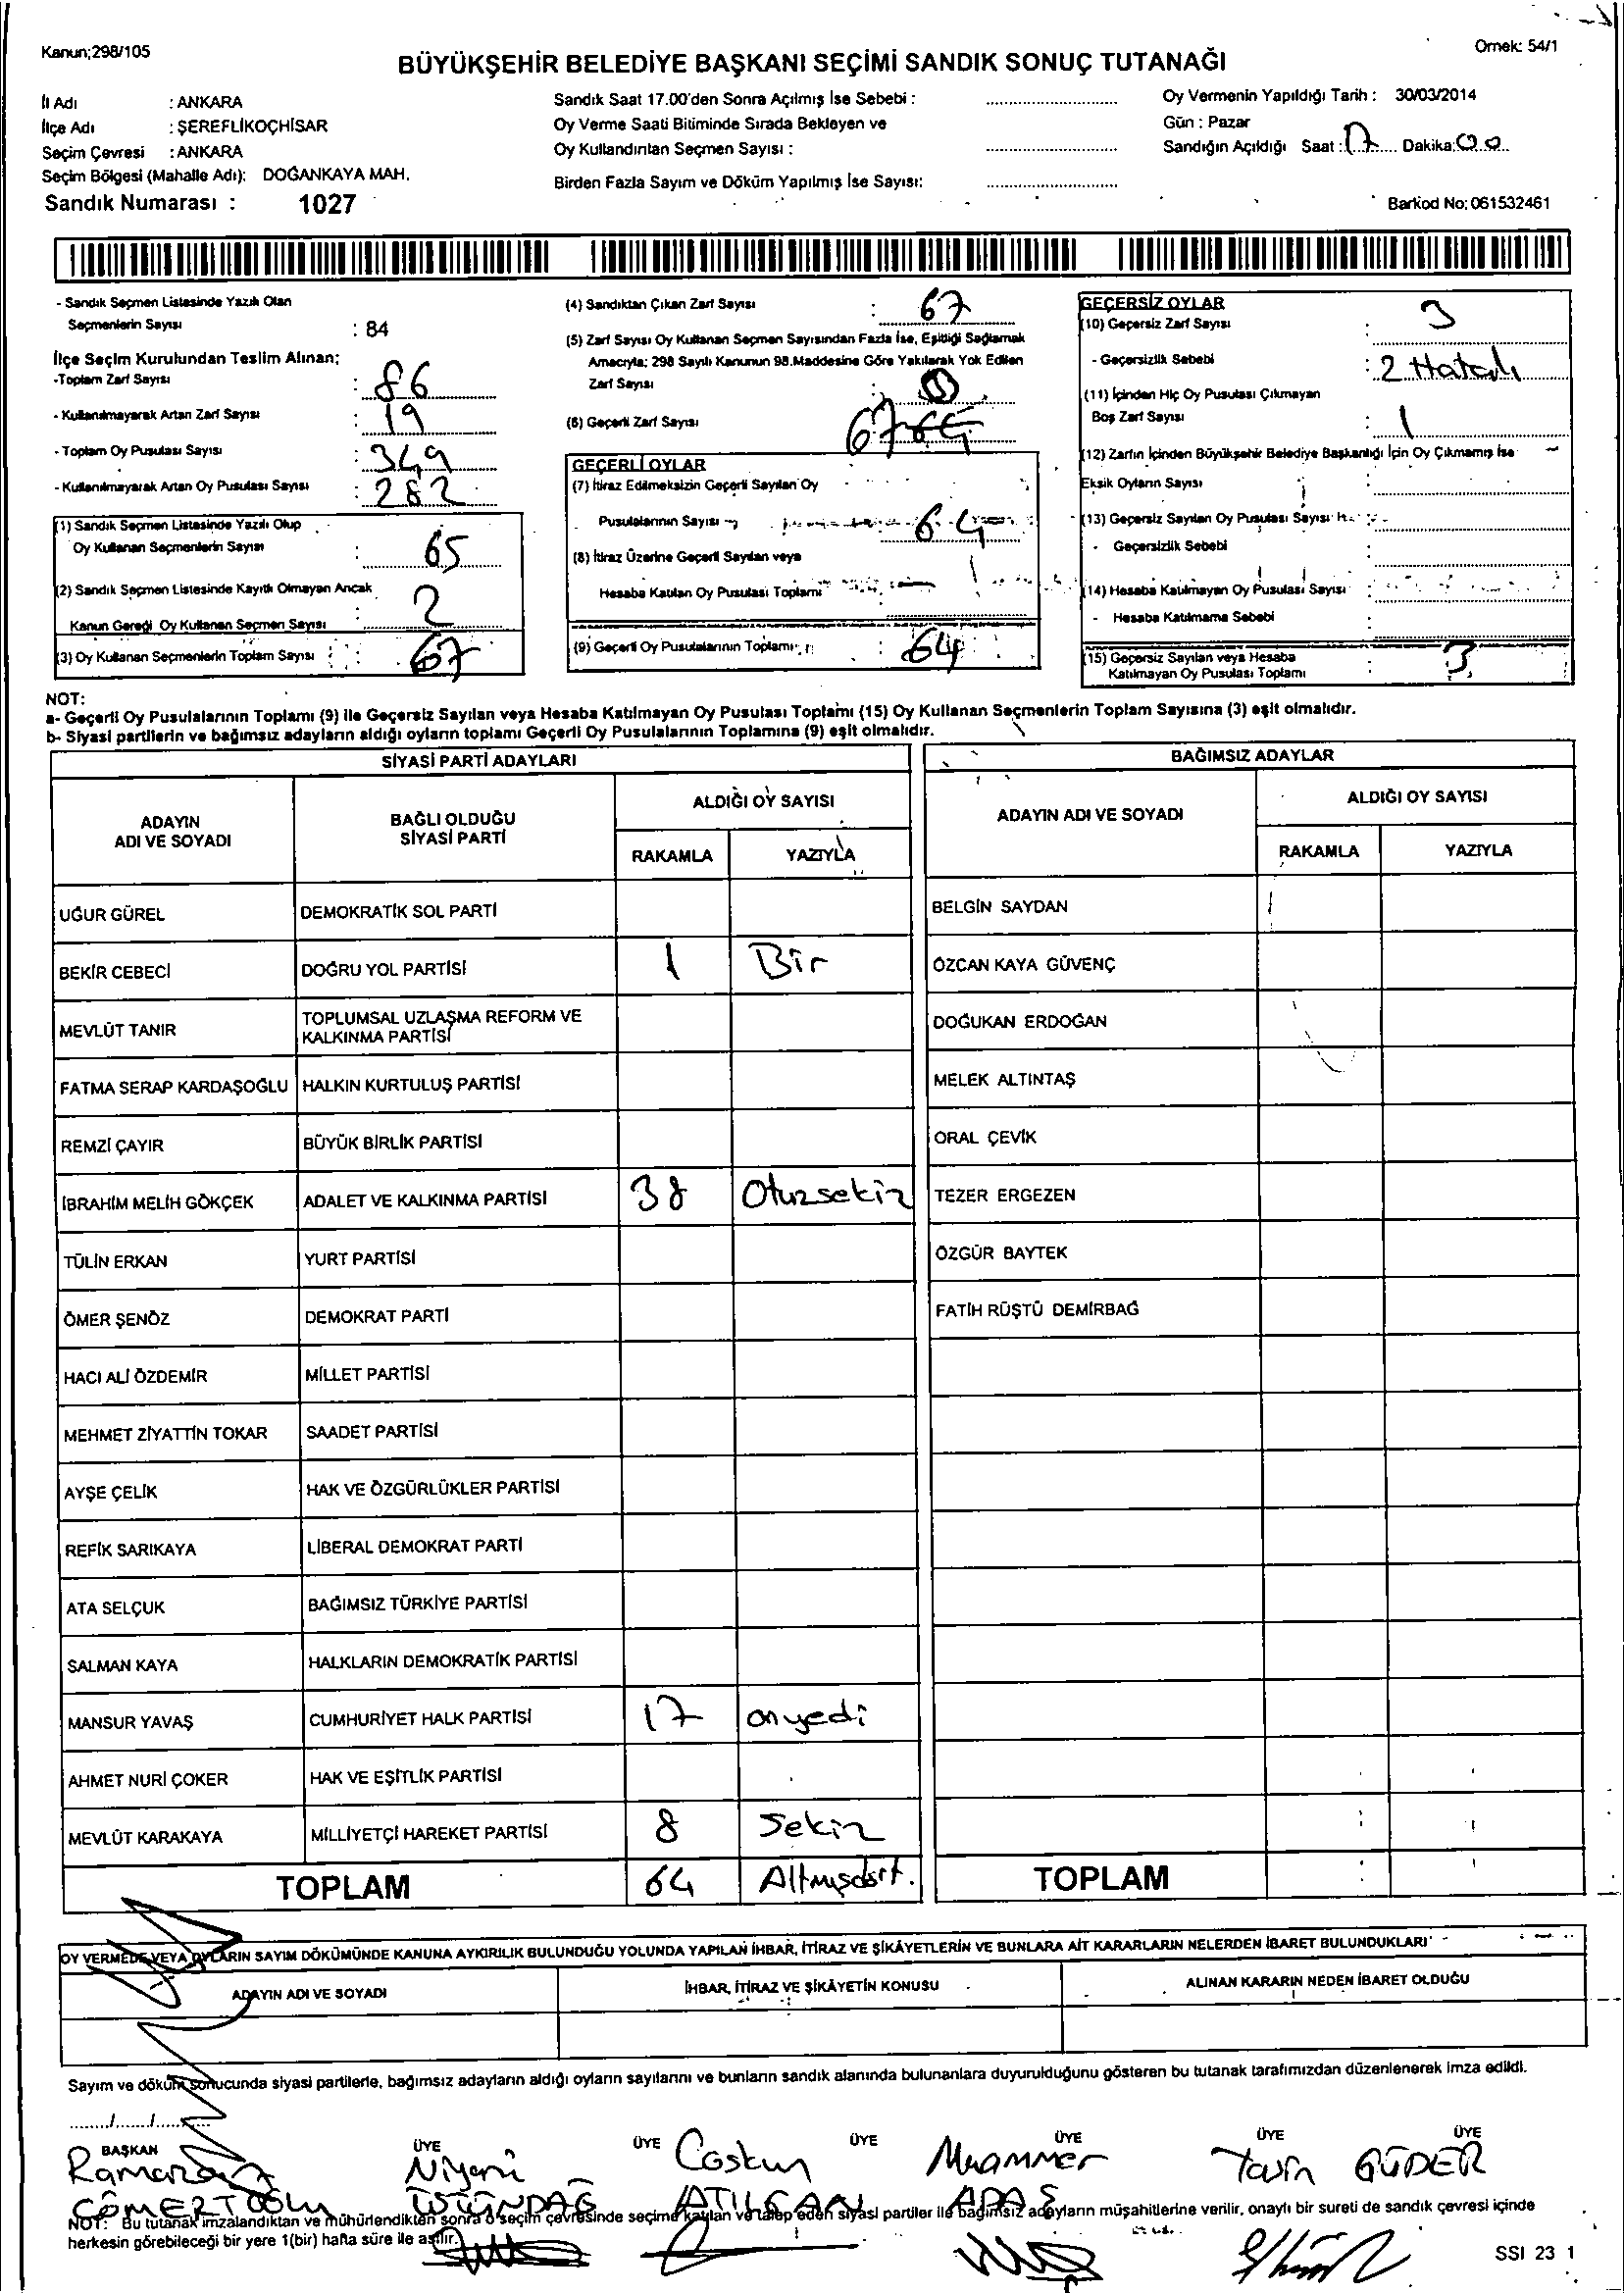 Kanun;298/105
Örnek: 54/1
BÜYÜKŞEHİR BELEDİYE BAŞKANI SEÇİMİ SANDIK SONUÇ TUTANAĞI
İl Adı : ANKARA
İlçe Adı : ŞEREFLİKOÇHİSAR
Seçim Çevresi : ANKARA
Seçim Bölgesi (Mahalle Adı): DOĞANKAYA MAH.
Sandık Numarası : 1027
Sandık Saat 17.00'den Sonra Açılmış İse Sebebi :
Oy Verme Saati Bitiminde Sırada Bekleyen ve
Oy Kullandırılan Seçmen Sayısı :
Birden Fazla Sayım ve Döküm Yapılmış İse Sayısı:
Oy Vermenin Yapıldığı Tarih : 30/03/2014
Gün : Pazar
Sandığın Açıldığı Saat : 17 Dakika: 00
Barkod No: 061532461
- Sandık Seçmen Listesinde Yazılı Olan
Seçmenlerin Sayısı : 84
İlçe Seçim Kurulundan Teslim Alınan:
-Toplam Zarf Sayısı : 86
- Kullanılmayarak Artan Zarf Sayısı : 19
- Toplam Oy Pusulası Sayısı : 349
- Kullanılmayarak Artan Oy Pusulası Sayısı : 282
(1) Sandık Seçmen Listesinde Yazılı Olup
Oy Kullanan Seçmenlerin Sayısı : 65
(2) Sandık Seçmen Listesinde Kayıtlı Olmayan Ancak
Kanun Gereği Oy Kullanan Seçmen Sayısı : 2
(3) Oy Kullanan Seçmenlerin Toplam Sayısı : 67
(4) Sandıktan Çıkan Zarf Sayısı : 67
(5) Zarf Sayısı Oy Kullanan Seçmen Sayısından Fazla İse, Eşitliği Sağlamak
Amacıyla; 298 Sayılı Kanunun 98.Maddesine Göre Yakılarak Yok Edilen
Zarf Sayısı :
(6) Geçerli Zarf Sayısı : 67
GEÇERLİ OYLAR
(7) İtiraz Edilmeksizin Geçerli Sayılan Oy
Pusulalarının Sayısı 64
(8) İtiraz Üzerine Geçerli Sayılan veya
Hesaba Katılan Oy Pusulası Toplamı
(9) Geçerli Oy Pusulalarının Toplamı : 64
GEÇERSİZ OYLAR
(10) Geçersiz Zarf Sayısı : 3
- Geçersizlik Sebebi : 2 Hatalı
(11) İçinden Hiç Oy Pusulası Çıkmayan
Boş Zarf Sayısı : 1
(12) Zarfın İçinden Büyükşehir Belediye Başkanlığı İçin Oy Çıkmamış İse -
Eksik Oyların Sayısı :
(13) Geçersiz Sayılan Oy Pusulası Sayısı
- Geçersizlik Sebebi
(14) Hesaba Katılmayan Oy Pusulası Sayısı
- Hesaba Katılmama Sebebi
(15) Geçersiz Sayılan veya Hesaba
Katılmayan Oy Pusulası Toplamı : 3
NOT:
a- Geçerli Oy Pusulalarının Toplamı (9) ile Geçersiz Sayılan veya Hesaba Katılmayan Oy Pusulası Toplamı (15) Oy Kullanan Seçmenlerin Toplam Sayısına (3) eşit olmalıdır.
b- Siyasi partilerin ve bağımsız adayların aldığı oyların toplamı Geçerli Oy Pusulalarının Toplamına (9) eşit olmalıdır.
SİYASİ PARTİ ADAYLARI
ADAYIN ADI VE SOYADI
BAĞLI OLDUĞU SİYASİ PARTİ
ALDIĞI OY SAYISI
RAKAMLA YAZIYLA
UĞUR GÜREL DEMOKRATİK SOL PARTİ
BEKİR CEBECİ DOĞRU YOL PARTİSİ 1 Bir
MEVLÜT TANIR TOPLUMSAL UZLAŞMA REFORM VE KALKINMA PARTİSİ
FATMA SERAP KARDAŞOĞLU HALKIN KURTULUŞ PARTİSİ
REMZİ ÇAYIR BÜYÜK BİRLİK PARTİSİ
İBRAHİM MELİH GÖKÇEK ADALET VE KALKINMA PARTİSİ 38 Otuzsekiz
TÜLİN ERKAN YURT PARTİSİ
ÖMER ŞENÖZ DEMOKRAT PARTİ
HACI ALİ ÖZDEMİR MİLLET PARTİSİ
MEHMET ZİYATTİN TOKAR SAADET PARTİSİ
AYŞE ÇELİK HAK VE ÖZGÜRLÜKLER PARTİSİ
REFİK SARIKAYA LİBERAL DEMOKRAT PARTİ
ATA SELÇUK BAĞIMSIZ TÜRKİYE PARTİSİ
SALMAN KAYA HALKLARIN DEMOKRATİK PARTİSİ
MANSUR YAVAŞ CUMHURİYET HALK PARTİSİ 17 onyedi
AHMET NURİ ÇOKER HAK VE EŞİTLİK PARTİSİ
MEVLÜT KARAKAYA MİLLİYETÇİ HAREKET PARTİSİ 8 Sekiz
TOPLAM 64 Altmışdört.
BAĞIMSIZ ADAYLAR
ADAYIN ADI VE SOYADI
ALDIĞI OY SAYISI
RAKAMLA YAZIYLA
BELGİN SAYDAN
ÖZCAN KAYA GÜVENÇ
DOĞUKAN ERDOĞAN
MELEK ALTINTAŞ
ORAL ÇEVİK
TEZER ERGEZEN
ÖZGÜR BAYTEK
FATİH RÜŞTÜ DEMİRBAĞ
TOPLAM
OY VERMEDE VEYA OYLARIN SAYIM DÖKÜMÜNDE KANUNA AYKIRILIK BULUNDUĞU YOLUNDA YAPILAN İHBAR, İTİRAZ VE ŞİKÂYETLERİN VE BUNLARA AİT KARARLARIN NELERDEN İBARET BULUNDUKLARI
ADAYIN ADI VE SOYADI İHBAR, İTİRAZ VE ŞİKÂYETİN KONUSU ALINAN KARARIN NEDEN İBARET OLDUĞU
Sayım ve döküm sonucunda siyasi partilerle, bağımsız adayların aldığı oyların sayılarını ve bunların sandık alanında bulunanlara duyurulduğunu gösteren bu tutanak tarafımızdan düzenlenerek imza edildi.
....../....../......
BAŞKAN ÜYE ÜYE ÜYE ÜYE ÜYE ÜYE
Ramazan Niyazi Coşkun Muammer Yasin GÜDER
CÖMERTOĞLU ÜSTÜNDAĞ ATILGAN APAŞ
NOT: Bu tutanak imzalandıktan ve mühürlendikten sonra o seçim çevresinde seçime katılan ve talep eden siyasi partiler ile bağımsız adayların müşahitlerine verilir, onaylı bir sureti de sandık çevresi içinde
herkesin görebileceği bir yere 1(bir) hafta süre ile asılır.
SSI 23 1